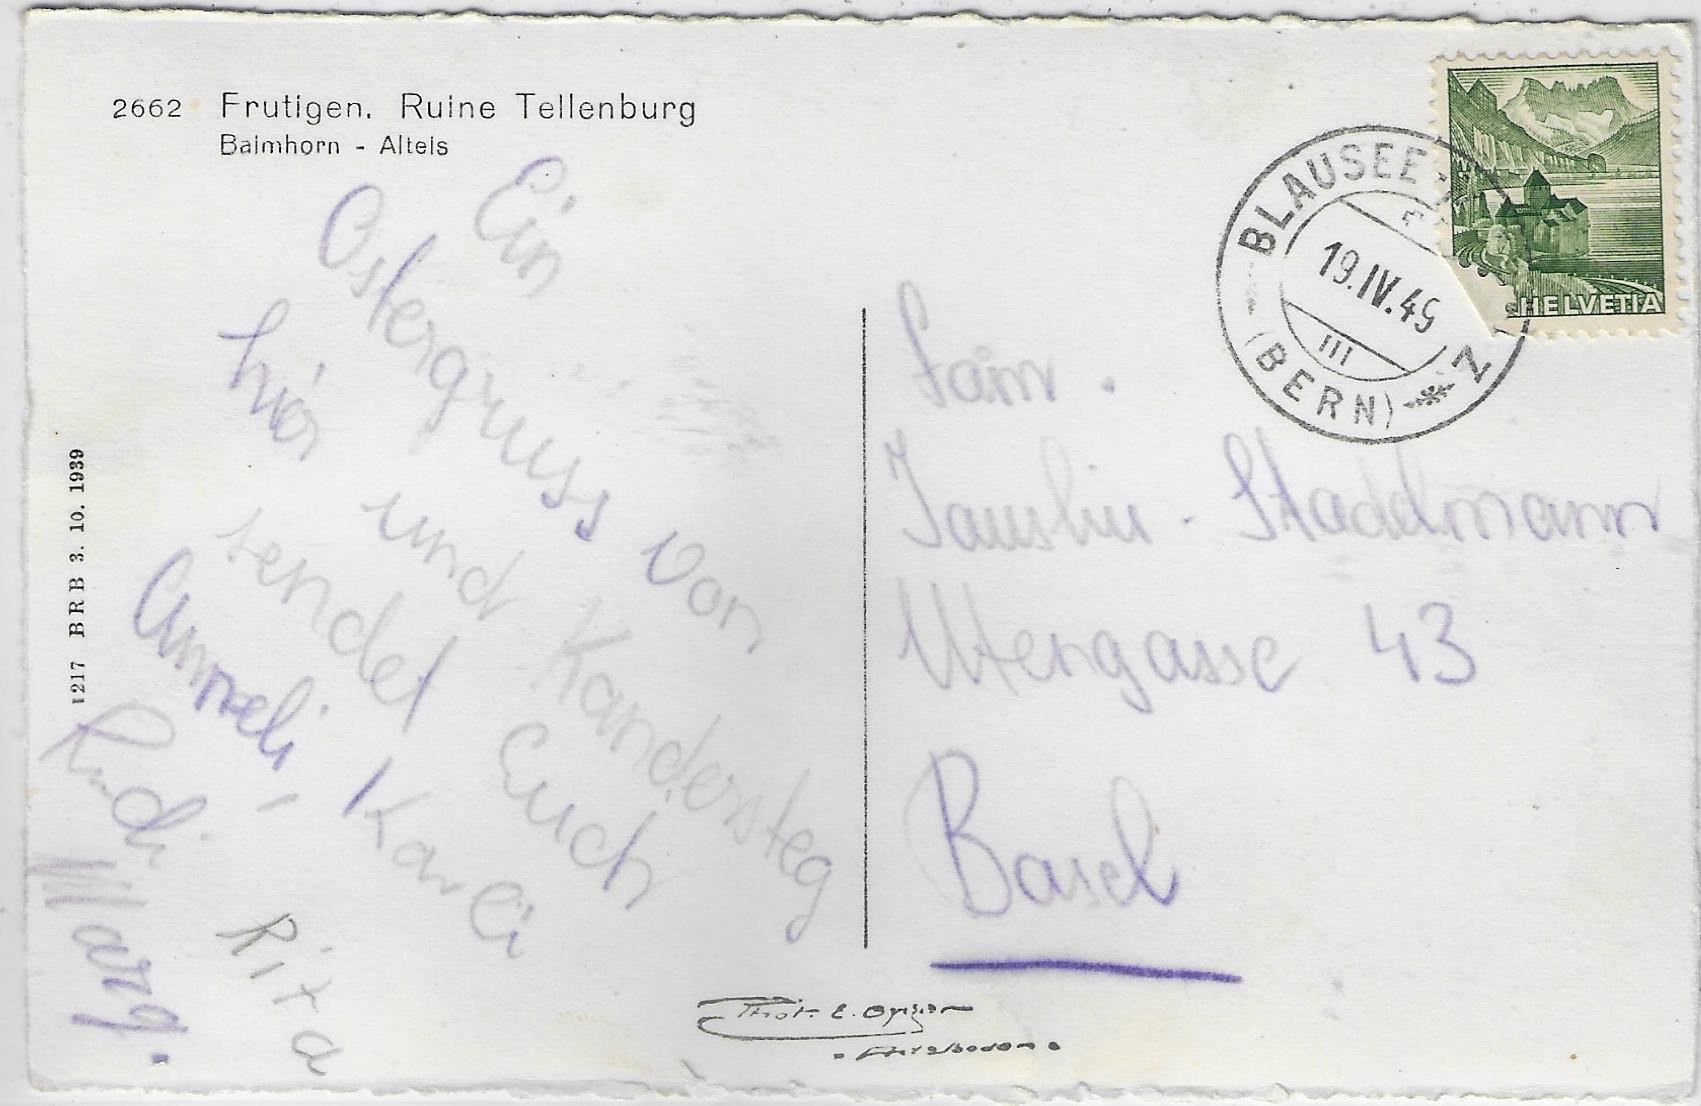 2662 Frutigen. Ruine Tellenburg
Balmhorn - Altels
Ein
Ostergruss von
hier und Kandersteg
sendet Euch
Anneli - Karli
Rudi Rita
Marg.
1217 BRB 3. 10. 1939
BLAUSEE
19.IV.49
III
(BERN)
HELVETIA
Fam.
Jauslin - Stadelmann
Utengasse 43
Basel
Phot. E. Gyger
Adelboden